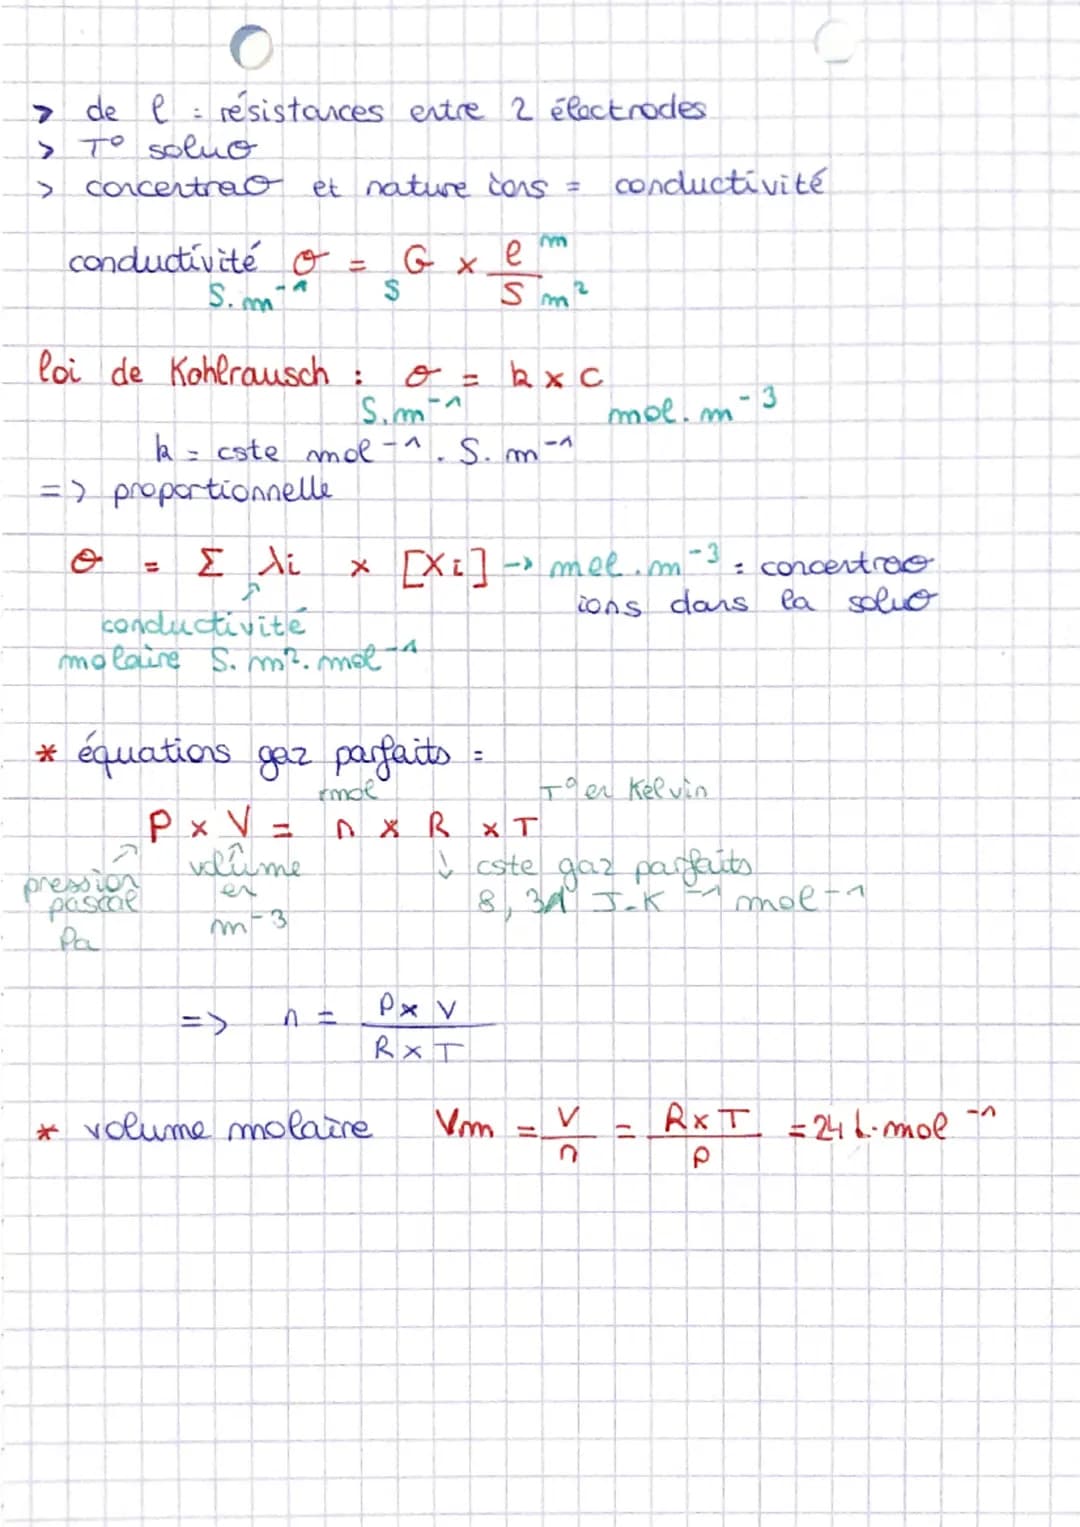 > de l = résistances entre 2 électrodes
> T° soluo
> concentrao et nature ions = conductivité
conductivité σ = G × e/S
S.m⁻¹ S m m²
loi de Kohlrausch : σ = k × C
S.m⁻¹ mol.m⁻³
k = cste mol⁻¹.S.m⁻¹
=> proportionnelle
σ = Σ λi × [Xi] → mol.m⁻³ : concentrao
ions dans la soluo
conductivité
molaire S.m².mol⁻¹
* équations gaz parfaits =
mol T° en Kelvin
P × V = n × R × T
pression pascal Pa
volume en m⁻³
↓ cste gaz parfaits
8,31 J.K⁻¹ mol⁻¹
=> n = P × V / R × T
* volume molaire Vm = V/n = R × T / P = 24 L.mol⁻¹